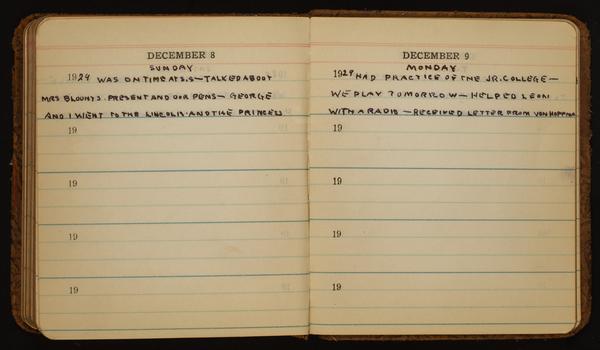 DECEMBER 8
SUNDAY
1929 WAS ON TIME AT S.S—TALKED ABOUT
MRS BLOUNTS. PRESENT AND OUR PENS— GEORGE
AND I WENT TO THE LINCOLN. AND THE PRINCESS
19
19
19
19
DECEMBER 9
MONDAY
1929 HAD PRACTICE OF THE JR. COLLEGE—
WE PLAY TOMORROW— HELPED LEON
WITH A RADIO — RECEIVED LETTER FROM VON
19
19
19
19